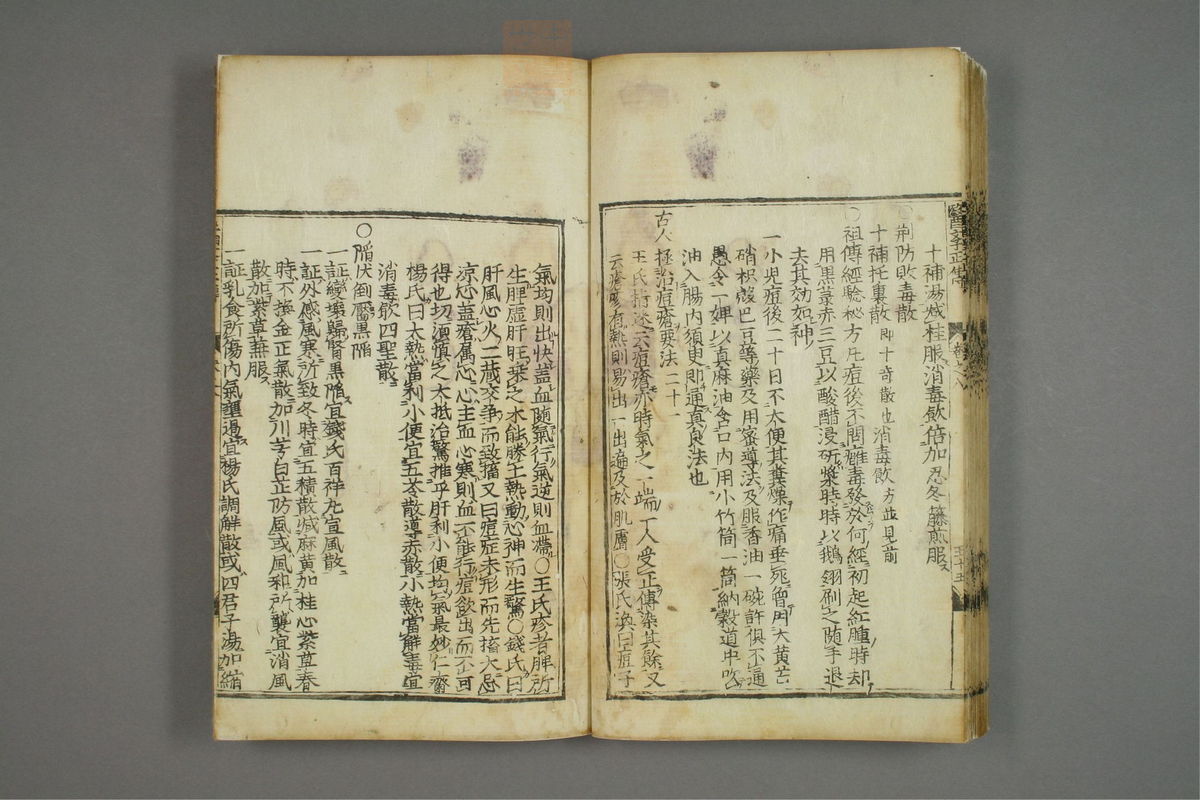 醫學正傳 卷之八 五十五
十補湯減桂服消毒飲倍加忍冬藤煎服
○荊防敗毒散
十補托裏散即十奇散也消毒飲方並見前
○祖傳經驗秘方凡痘後不問癰毒發於何經初起紅腫時却
用黑菉赤三豆以酸醋浸研漿時時以鵝翎刷之随手退
去其効如神
一小児痘後二十日不大便其糞燥作痛垂死曽用大黄芒
硝枳殻巴豆等藥及用蜜導法及服香油一碗許俱不通
愚令一婢以真麻油含口内用小竹筒一箇納糓道中吹
油入腸内須臾即通真良法也
古人拯治痘瘡要法二十一
王氏指迷云痘瘡亦時氣之一端一人受之傳染其餘又
云瘡疹有熱則易出一出遍及於肌膚○張氏渙曰痘子
氣均則出快盖血随氣行氣逆則血滯○王氏疹者脾所
生脾虛肝旺乗之木能勝土熱動心神而生驚○錢氏曰
肝風心火二蔵交争而致搐又曰痘症未形而先搐大忌
凉心盖瘡属心心主血心寒則血不能行痘飲出而不可
得也切須慎之大抵治驚推乎肝利小便均氣最妙仁齋
楊氏曰大熱當利小便宜五苓散導赤散小熱當觧毒宜
消毒飲四聖散
○陷伏倒靨黒陷
一証變壊歸腎黒陷宜錢氏百祥丸宣風散
一証外感風寒所致冬時宜五積散減麻黄加桂心紫草春
時不換金正氣散加川芎白芷防風或風邪所襲宜消風
散加紫草煎服
一証乳食所傷内氣壅遏宜楊氏調解散或四君子湯加縮